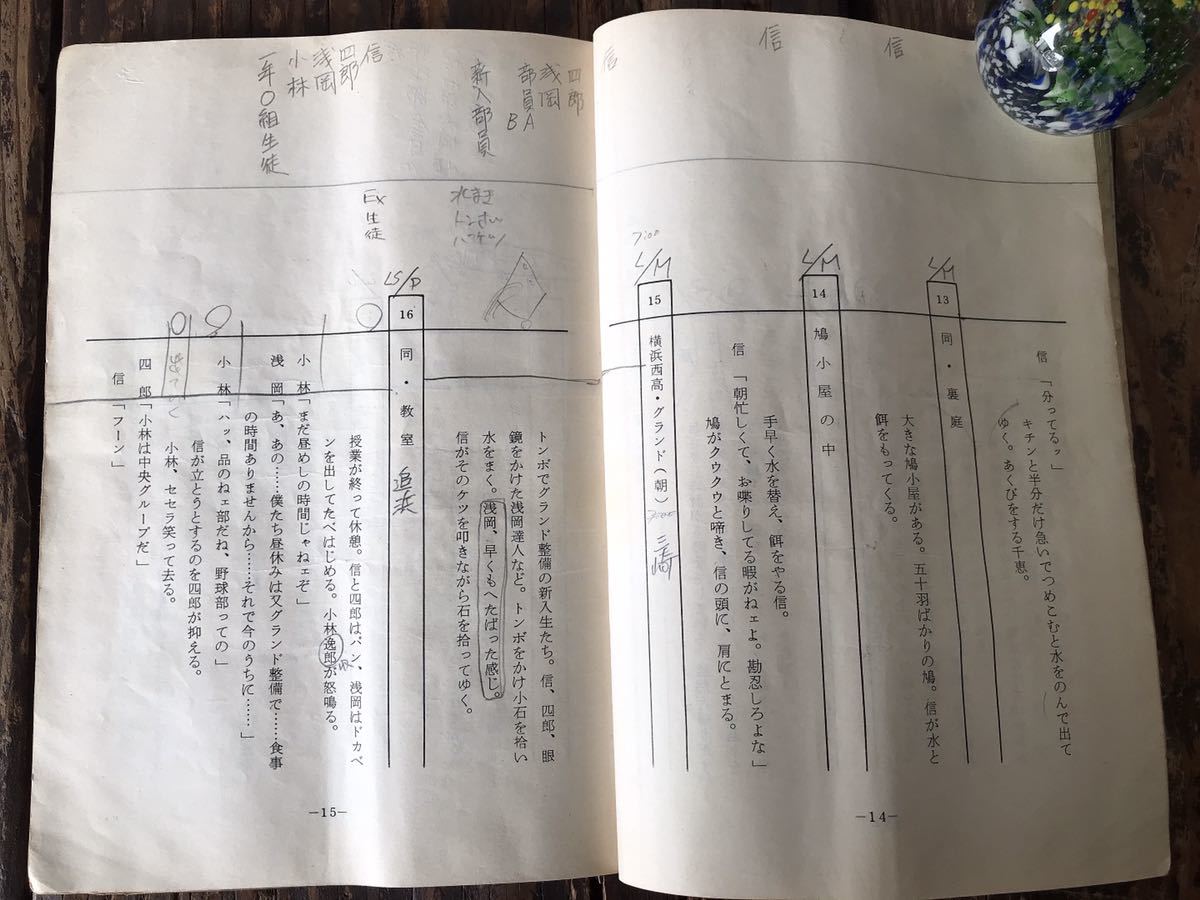 信
信
信
L/M
13
同・裏庭
L/M
14
鳩小屋の中
7:00
L/M
15
横浜西高・グランド(朝)
三崎
信「分ってるッ」
キチンと半分だけ急いでつめこむと水をのんで出て
ゆく。あくびをする千恵。
大きな鳩小屋がある。五十羽ばかりの鳩。信が水と
餌をもってくる。
手早く水を替え、餌をやる信。
信「朝忙しくて、お喋りしてる暇がねェよ。勘忍しろよな」
鳩がクウクウと啼き、信の頭に、肩にとまる。
—14—
四郎
浅岡
部員A
B
新入部員
水まき
トンボ
バケツ
トンボでグランド整備の新入生たち。信、四郎、眼
鏡をかけた浅岡達人など。トンボをかけ小石を拾い
水をまく。浅岡、早くもへたばった感じ。
信がそのケツを叩きながら石を拾ってゆく。
信
四郎
浅岡
小林
一年〇組生徒
EX
生徒
LS/D
16
同・教室
追浜
授業が終って休憩。信と四郎はパン、浅岡はドカベ
ンを出してたべはじめる。小林逸郎が怒鳴る。
小林「まだ昼めしの時間じゃねェぞ」
浅岡「あ、あの……僕たち昼休みは又グランド整備で……食事
の時間ありませんから……それで今のうちに……」
小林「ハッ、品のねェ部だね、野球部っての」
信が立とうとするのを四郎が抑える。
小林、セセラ笑って去る。
出ていく
四郎「小林は中央グループだ」
信「フーン」
—15—